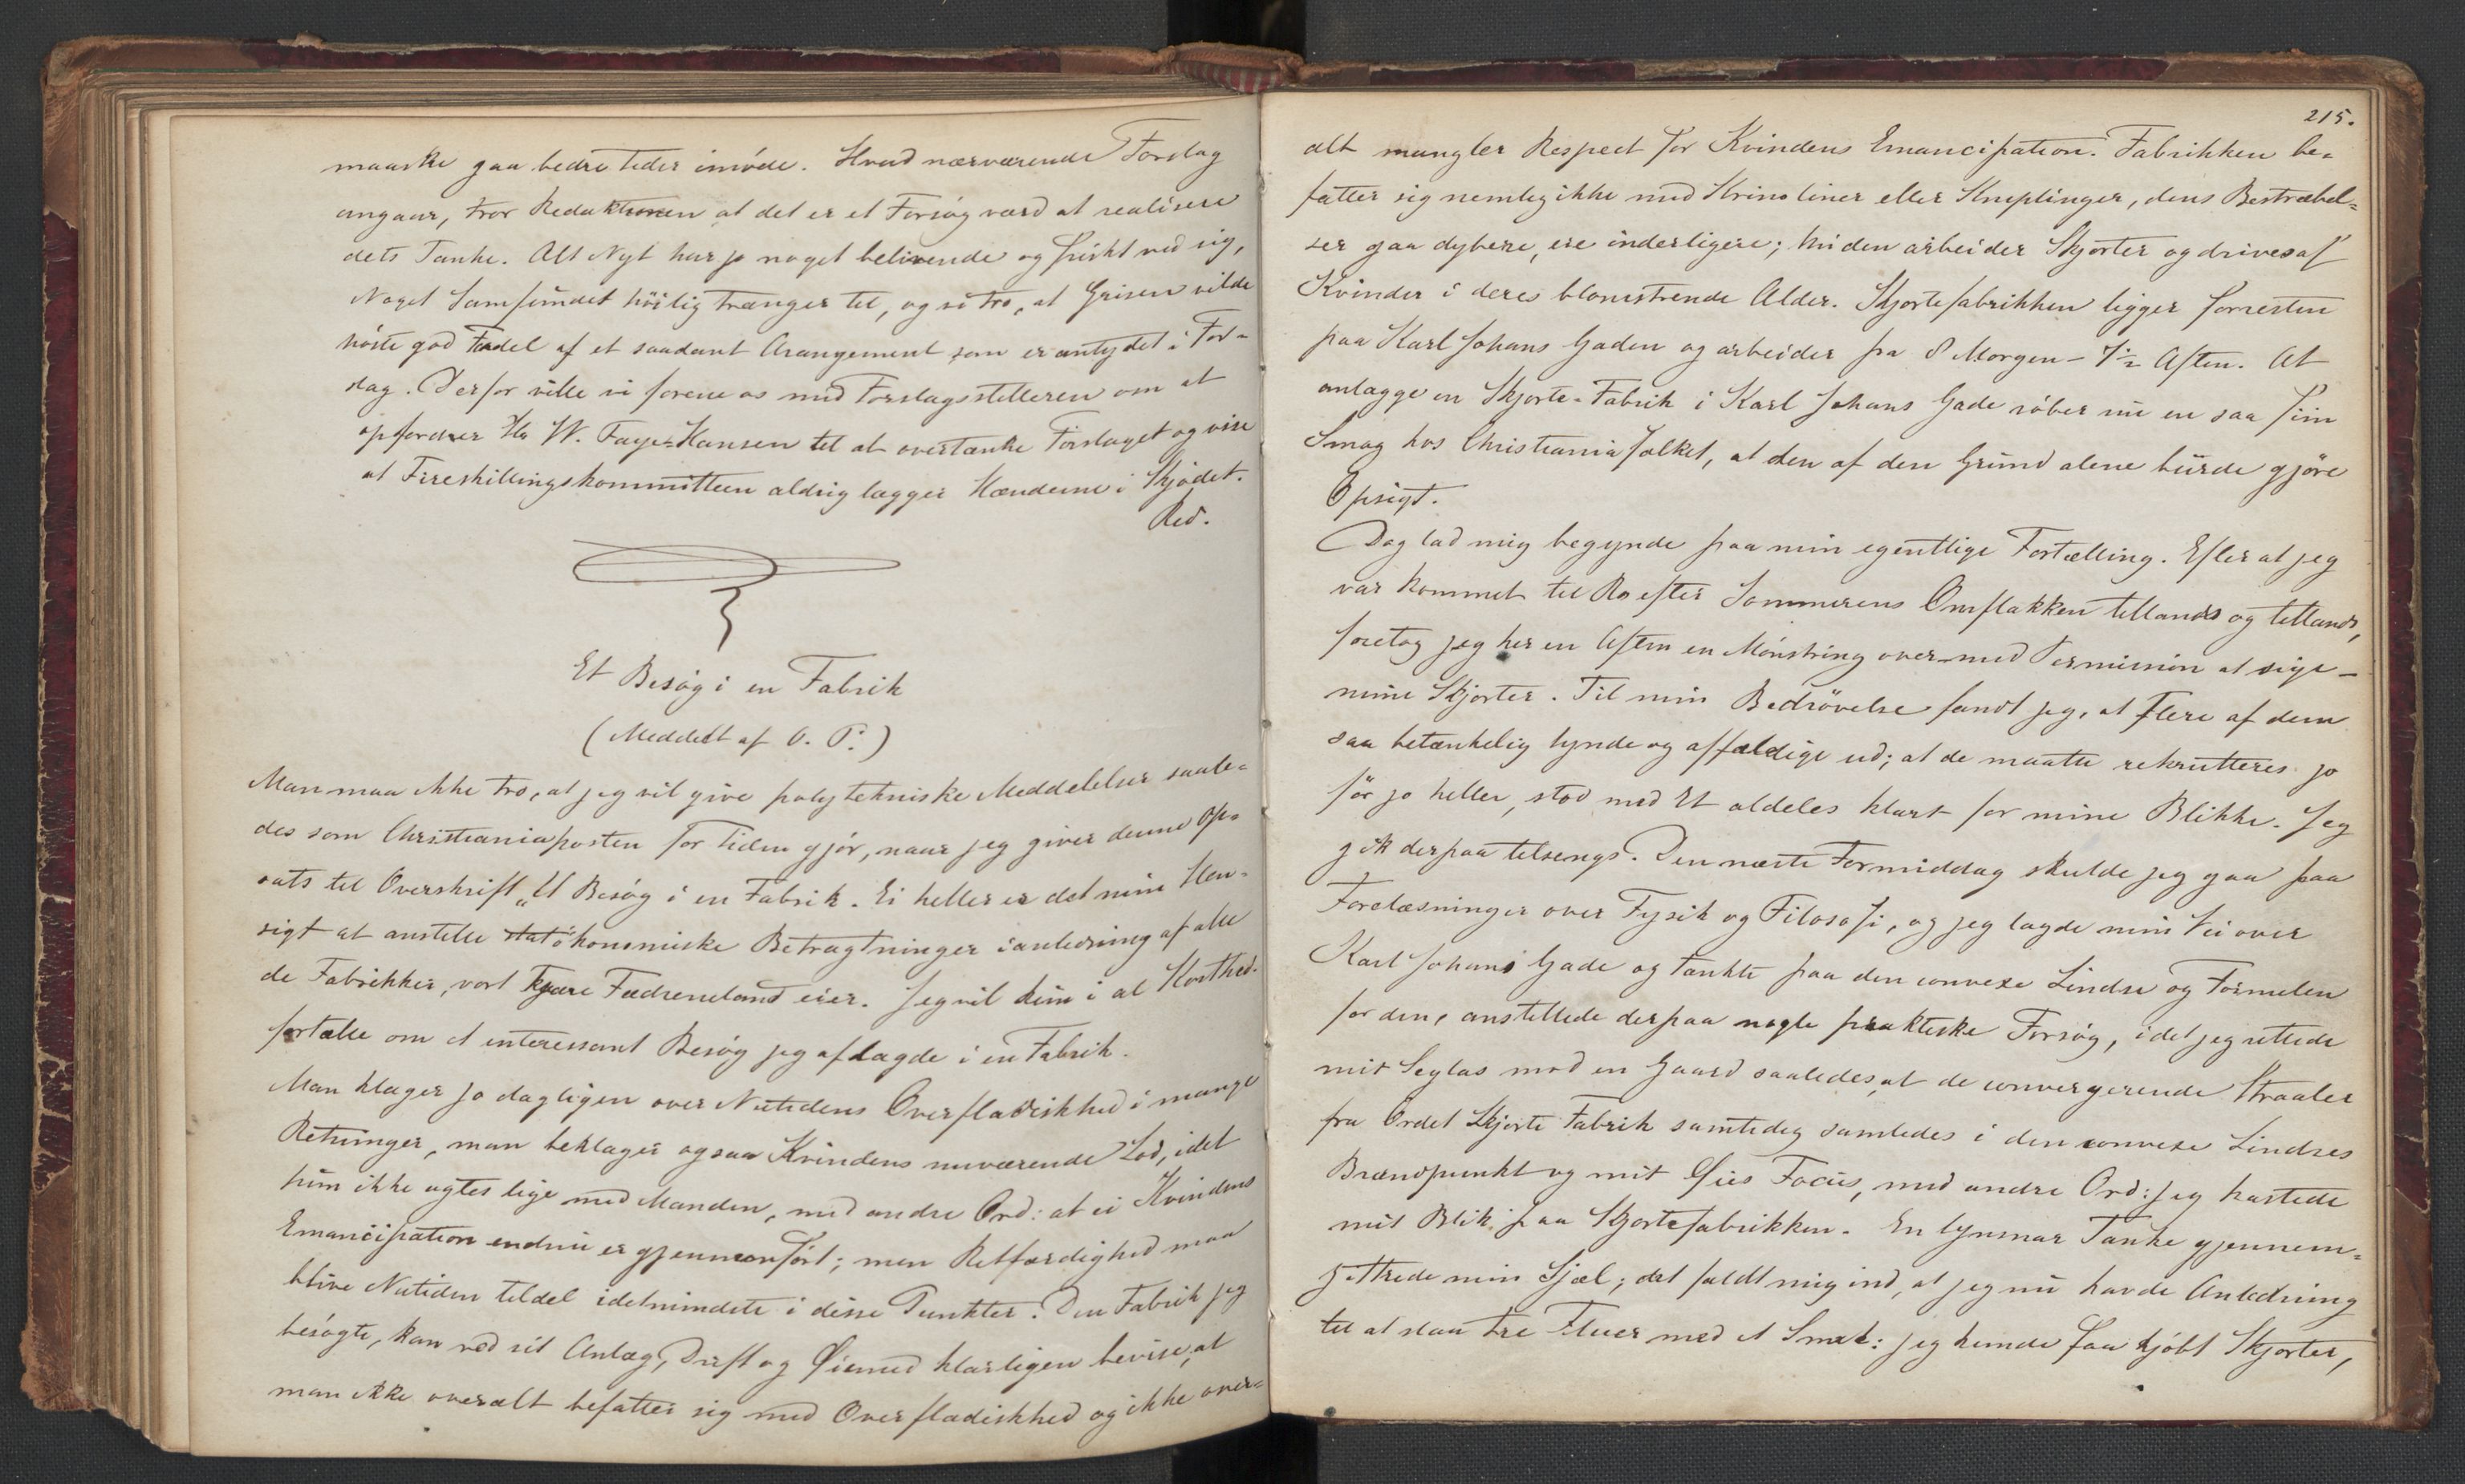 maaske gaa bedre tider imøde. Hvad nærværende Forslag
angaar, tror Redaktionen at det er et Forsøg værd at realisere
dets Tanke. Alt Nyt har jo noget belivende og friskt ved sig,
Noget Samfundet høilig trænger til, og vi tro, at Grisen vilde
høste god Fordel af et saadant Arangement som er antydet i For-
slag. Derfor ville vi forene os med Forslagsstilleren om at
opfordrer Hr W. Faye-Hansen til at overtænke Forslaget og vise
at Fireskillingskommitteen aldrig lægger Hænderne i Skjødet.
Red.
Et Besøg i en Fabrik
(Meddelt af O. P.)
Man maa ikke tro, at jeg vil give polytekniske Meddelelser saale-
des som Christianiaposten for Tiden gjør, naar jeg giver denne Op-
sats til Overskrift „Et Besøg i en Fabrik. Ei heller er det min Hen-
sigt at anstille statøkonomiske Betragtninger i anledning af alle
de Fabrikker, vort kjære Fædreneland eier. Jeg vil kun i al Korthed
fortælle om et interessant Besøg jeg aflagde i en Fabrik.
Man klager jo dagligen over Nutidens Overfladiskhed i mange
Retninger, man beklager ogsaa Kvindens nuværende Lod, idet
hun ikke agtes lige med Manden, med andre Ord: at ei Kvindens
Emancipation endnu er gjennemført; men Retfærdighed maa
blive Nutiden tildel idetmindste i disse Punkter. Den Fabrik jeg
besøgte, kan ved sit Anlæg, Drift og Øiemed klarligen bevise, at
man ikke overalt befatter sig med Overfladiskhed og ikke over-
215.
alt mangler Respect for Kvindens Emancipation. Fabrikken be-
fatter sig nemlig ikke med Krinoliner eller Kniplinger, dens Bestræbel-
ser gaa dybere, ere inderligere; thi den arbeider Skjorter og drives af
Kvinder i deres blomstrende Alder. Skjortefabrikken ligger forresten
paa Karl Johans Gaden og arbeider fra 8 Morgen - 7½ Aften. At
anlægge en Skjorte-Fabrik i Karl Johans Gade røber nu en saa fiin
Smag hos Christianiafolket, at den af den Grund alene burde gjøre
Opsigt.
Dog lad mig begynde paa min egentlige Fortælling. Efter at jeg
var kommet til Ro efter Sommerens Omflakken tillands og tillands,
foretog jeg her en Aften en Mønstring over - med Permission at sige -
mine Skjorter. Til min Bedrøvelse fandt jeg, at flere af dem
saa betænkelig tynde og affældige ud; at de maatte rekrutteres jo
før jo heller, stod med Et aldeles klart for mine Blikke. Jeg
gik derpaa tilsengs. Den næste Formiddag skulde jeg gaa paa
Forelæsninger over Fysik og Filosofi, og jeg lagde min Vei over
Karl Johans Gade og tænkte paa den convexe Lindse og Formelen
for den, anstillede derpaa nogle praktiske Forsøg, idet jeg rettede
mit Seglas mod en Gaard saaledes, at de convergerende Straaler
fra Ordet Skjorte Fabrik samtidig samledes i den convexe Lindses
Brændpunkt og mit Øies Focus, med andre Ord: jeg kastede
mit Blik paa Skjortefabrikken. En lynsnar Tanke gjennem-
zittrede min Sjæl; det faldt mig ind, at jeg nu havde Anledning
til at slaa tre Fluer med et Smæk: jeg kunde faa kjøbt Skjorter,